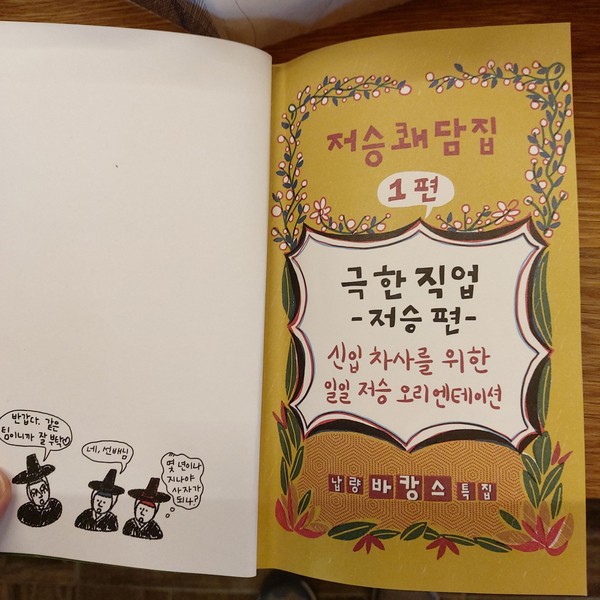 반갑다. 같은
팀이니까 잘 부탁♡
네, 선배님
몇 년이나
지나야
사자가
되나?
저승쾌담집
1편
극한직업
-저승편-
신입 차사를 위한
일일 저승 오리엔테이션
납량 바캉스 특집